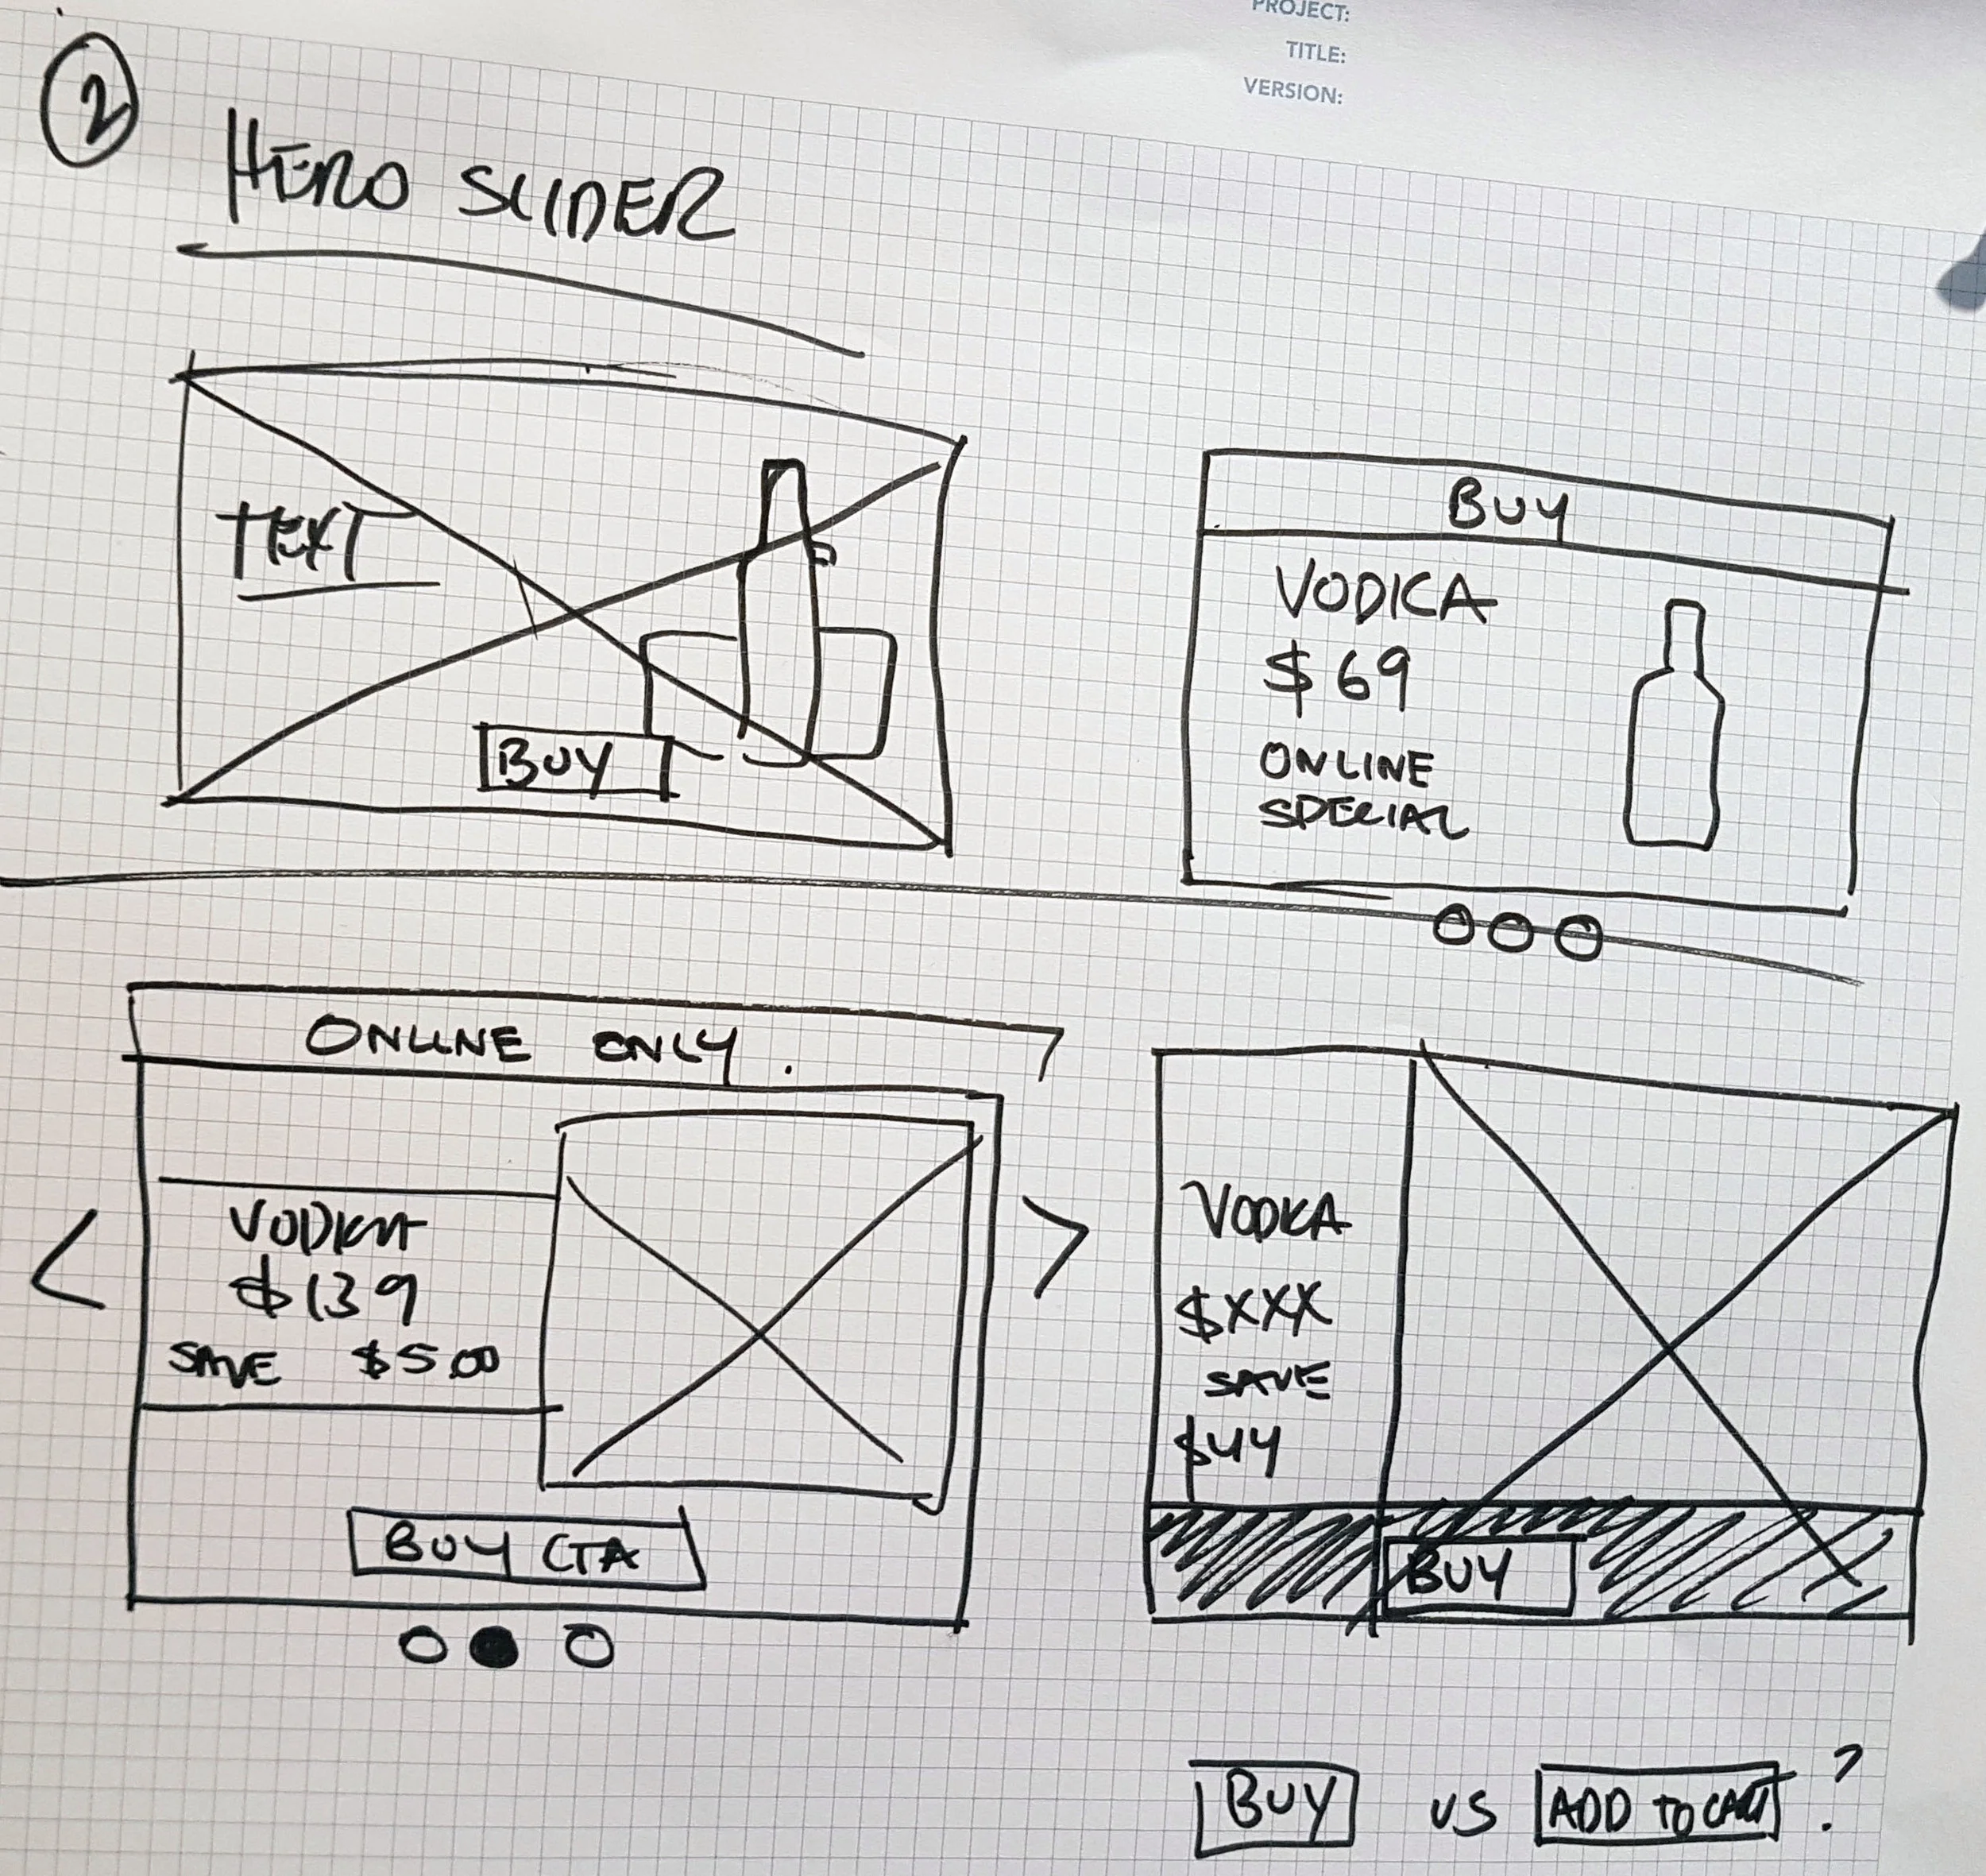 PROJECT:
TITLE:
VERSION:
2
HERO SLIDER
TEXT
BUY
BUY
VODKA
$69
ONLINE
SPECIAL
ONLINE ONLY.
VODKA
$139
SAVE $5.00
BUY CTA
VODKA
$XXX
SAVE
$44
BUY
BUY VS ADD TO CART ?